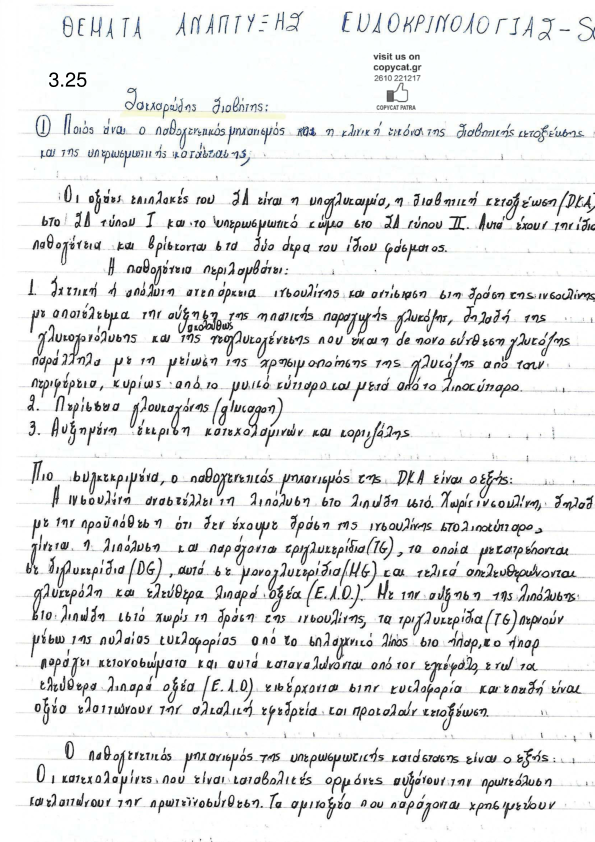 ΘΕΜΑΤΑ ΑΝΑΠΤΥΞΗΣ ΕΝΔΟΚΡΙΝΟΛΟΓΙΑΣ - So
visit us on
copycat.gr
2610 221217
COPYCAT PATRA
3.25
Σακχαρώδης Διαβήτης:
① Ποιός είναι ο παθογενετικός μηχανισμός και η κλινική εικόνα της διαβητικής κετοξέωσης
και της υπερωσμωτικής κατάστασης;
Οι οξείες επιπλοκές του ΣΔ είναι η υπογλυκαιμία, η διαβητική κετοξέωση (DKA)
στο ΣΔ τύπου I και το υπερωσμωτικό κώμα στο ΣΔ τύπου II. Αυτά έχουν την ίδια
παθογένεια και βρίσκονται στα δύο άκρα του ίδιου φάσματος.
Η παθογένεια περιλαμβάνει:
1. Σχετική ή απόλυτη ανεπάρκεια ινσουλίνης και αντίσταση στη δράση της ινσουλίνης
με αποτέλεσμα την αύξηση της ηπατικής παραγωγής γλυκόζης, δηλαδή της
γλυκογονόλυσης και ακολούθως της νεογλυκογένεσης που είναι η de novo σύνθεση γλυκόζης
παράλληλα με τη μείωση της χρησιμοποίησης της γλυκόζης από την
περιφέρεια, κυρίως από το μυικό κύτταρο και μετά από το λιποκύτταρο.
2. Περίσσεια γλουκαγόνης (glucagon)
3. Αυξημένη έκκριση κατεχολαμινών και κορτιζόλης
Πιο συγκεκριμένα, ο παθογενετικός μηχανισμός της DKA είναι ο εξής:
Η ινσουλίνη αναστέλλει τη λιπόλυση στο λιπώδη ιστό. Χωρίς ινσουλίνη, δηλαδ
με την προϋπόθεση ότι δεν έχουμε δράση της ινσουλίνης στο λιποκύτταρο,
γίνεται η λιπόλυση και παράγονται τριγλυκερίδια (TG), τα οποία μετατρέπονται
σε διγλυκερίδια (DG), αυτά σε μονογλυκερίδια (MG) και τελικά απελευθερώνονται
γλυκερόλη και ελεύθερα λιπαρά οξέα (Ε.Λ.Ο). Με την αύξηση της λιπόλυσης
στο λιπώδη ιστό χωρίς τη δράση της ινσουλίνης, τα τριγλυκερίδια (TG) περνούν
μέσω της πυλαίας κυκλοφορίας από το σπλαγχνικό λίπος στο ήπαρ, το ήπαρ
παράγει κετονοσώματα και αυτά καταναλώνονται από τον εγκέφαλο ενώ τα
ελεύθερα λιπαρά οξέα (Ε.Λ.Ο) εισέρχονται στην κυκλοφορία και επειδή είναι
οξέα ελαττώνουν την αλκαλική εφεδρεία και προκαλούν κετοξέωση.
Ο παθογενετικός μηχανισμός της υπερωσμωτικής κατάστασης είναι ο εξής:
Οι κατεχολαμίνες που είναι καταβολικές ορμόνες αυξάνουν την πρωτεόλυση
και ελαττώνουν την πρωτεϊνοσύνθεση. Τα αμινοξέα που παράγονται χρησιμεύουν